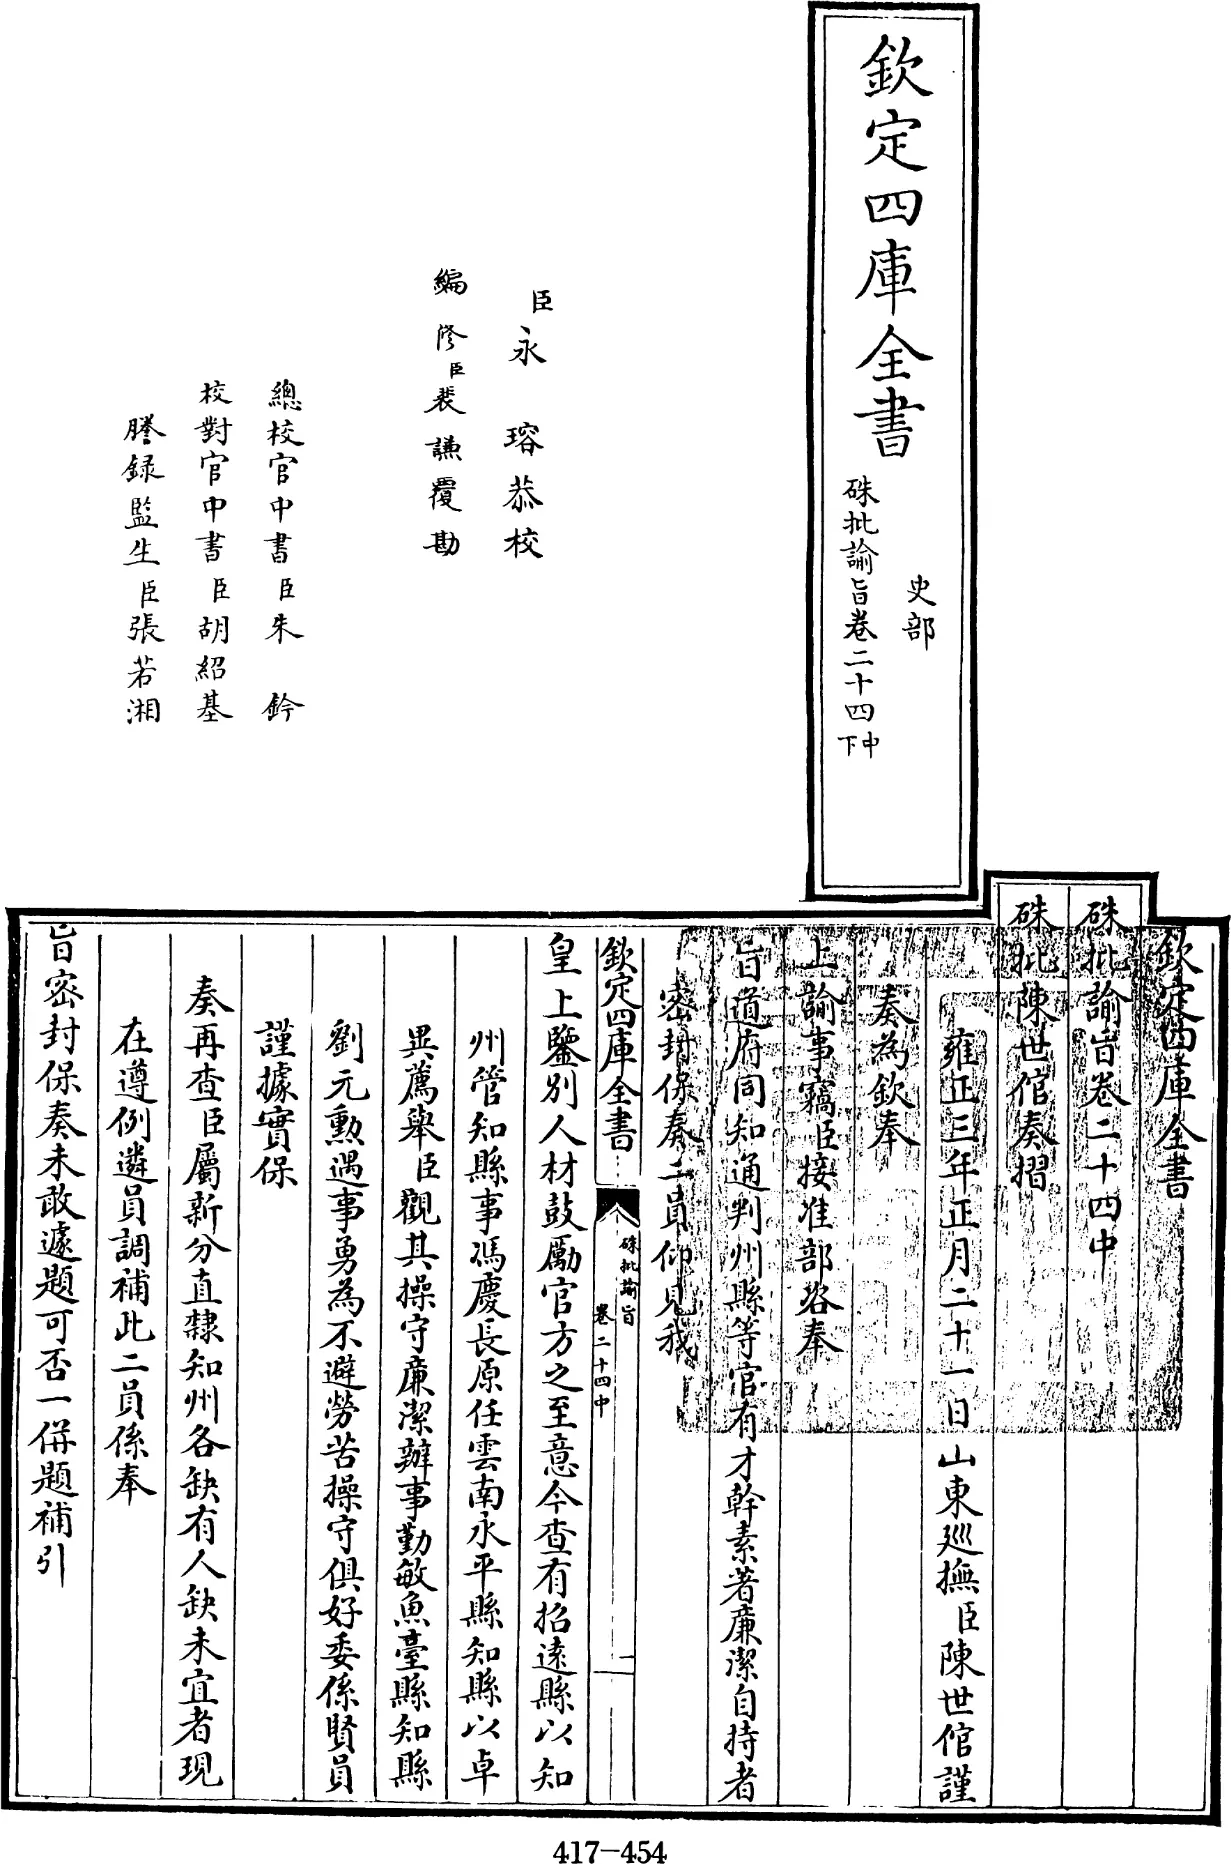 欽定四庫全書
史部
硃批諭旨卷二十四中下
臣永瑢恭校
編修臣裴謙覆勘
總校官中書臣朱鈐
校對官中書臣胡紹基
謄録監生臣張若湘
欽定四庫全書
硃批諭旨卷二十四中
硃批陳世倌奏摺
雍正三年正月二十一日山東廵撫臣陳世倌謹
奏為欽奉
上諭事竊臣接准部咨奉
旨道府同知通判州縣等官有才幹素著廉潔自持者
密封保奏二員仰見我
欽定四庫全書
硃批諭旨
卷二十四中
一
皇上鑒別人材鼓勵官方之至意今查有招逺縣以知
州管知縣事馮慶長原任雲南永平縣知縣以卓
異薦舉臣觀其操守廉潔辦事勤敏魚臺縣知縣
劉元勲遇事勇為不避勞苦操守俱好委係賢員
謹據實保
奏再查臣屬新分直隸知州各缺有人缺未宜者現
在遵例遴員調補此二員係奉
旨密封保奏未敢遽題可否一併題補引
417-454